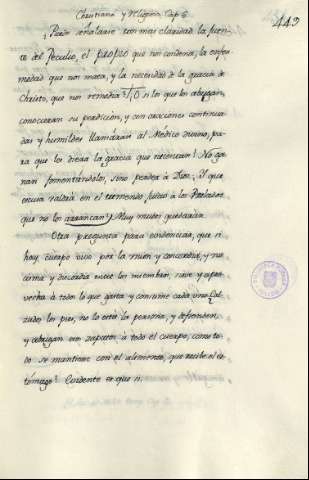 Christiana y Religiosa Cap. 6
449
¿Pudo señalarse con mas claridad la fuen-
te del Peculio, el propio que nos condena, la enfer-
medad que nos mata, y la necesidad de la gracia de
Christo, que nos remedia? ¡O si los que los abrigan,
conocieran su perdicion, y con oraciones continua-
das y humildes llamaran al Medico Divino, pa-
ra que los diera la gracia que necesitan! No ga-
nan fomentandolo, sino perder a Dios: ¿Y que
escusa valdrá en el tremendo juicio a los Prelados
que no los arrancan? Muy mucho quedaria.
Otra pregunta para evidenciar, que si
hay cuerpo vivo por la union y concordia, y no
cisma y discordia entre los miembros, sirve y apro-
vecha a todos lo que gasta y consume cada uno. Cal-
zados los pies, no lo está la persona, y defienden
y abrigan sus zapatos a todo el cuerpo, como to-
do se mantiene con el alimento, que recibe el es-
tomago? Evidente es que si.